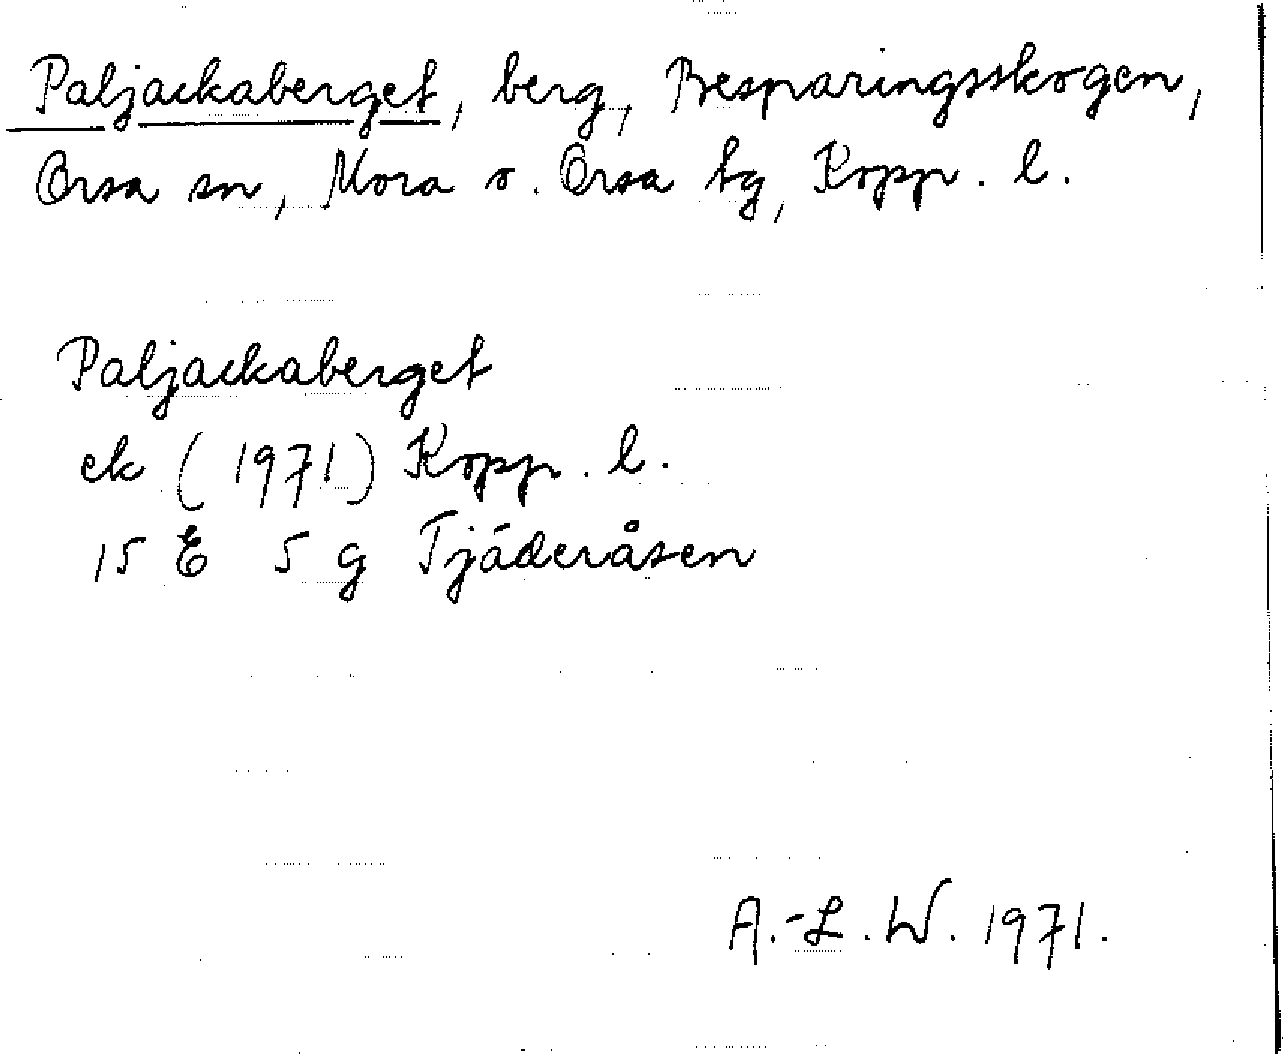 Paljackaberget, berg, Besparingsskogen,
Orsa sn, Mora o. Orsa tg, Kopp. l.
Paljackaberget
ek (1971) Kopp. l.
15 E 5 g Tjäderåsen
A.-L. W. 1971.